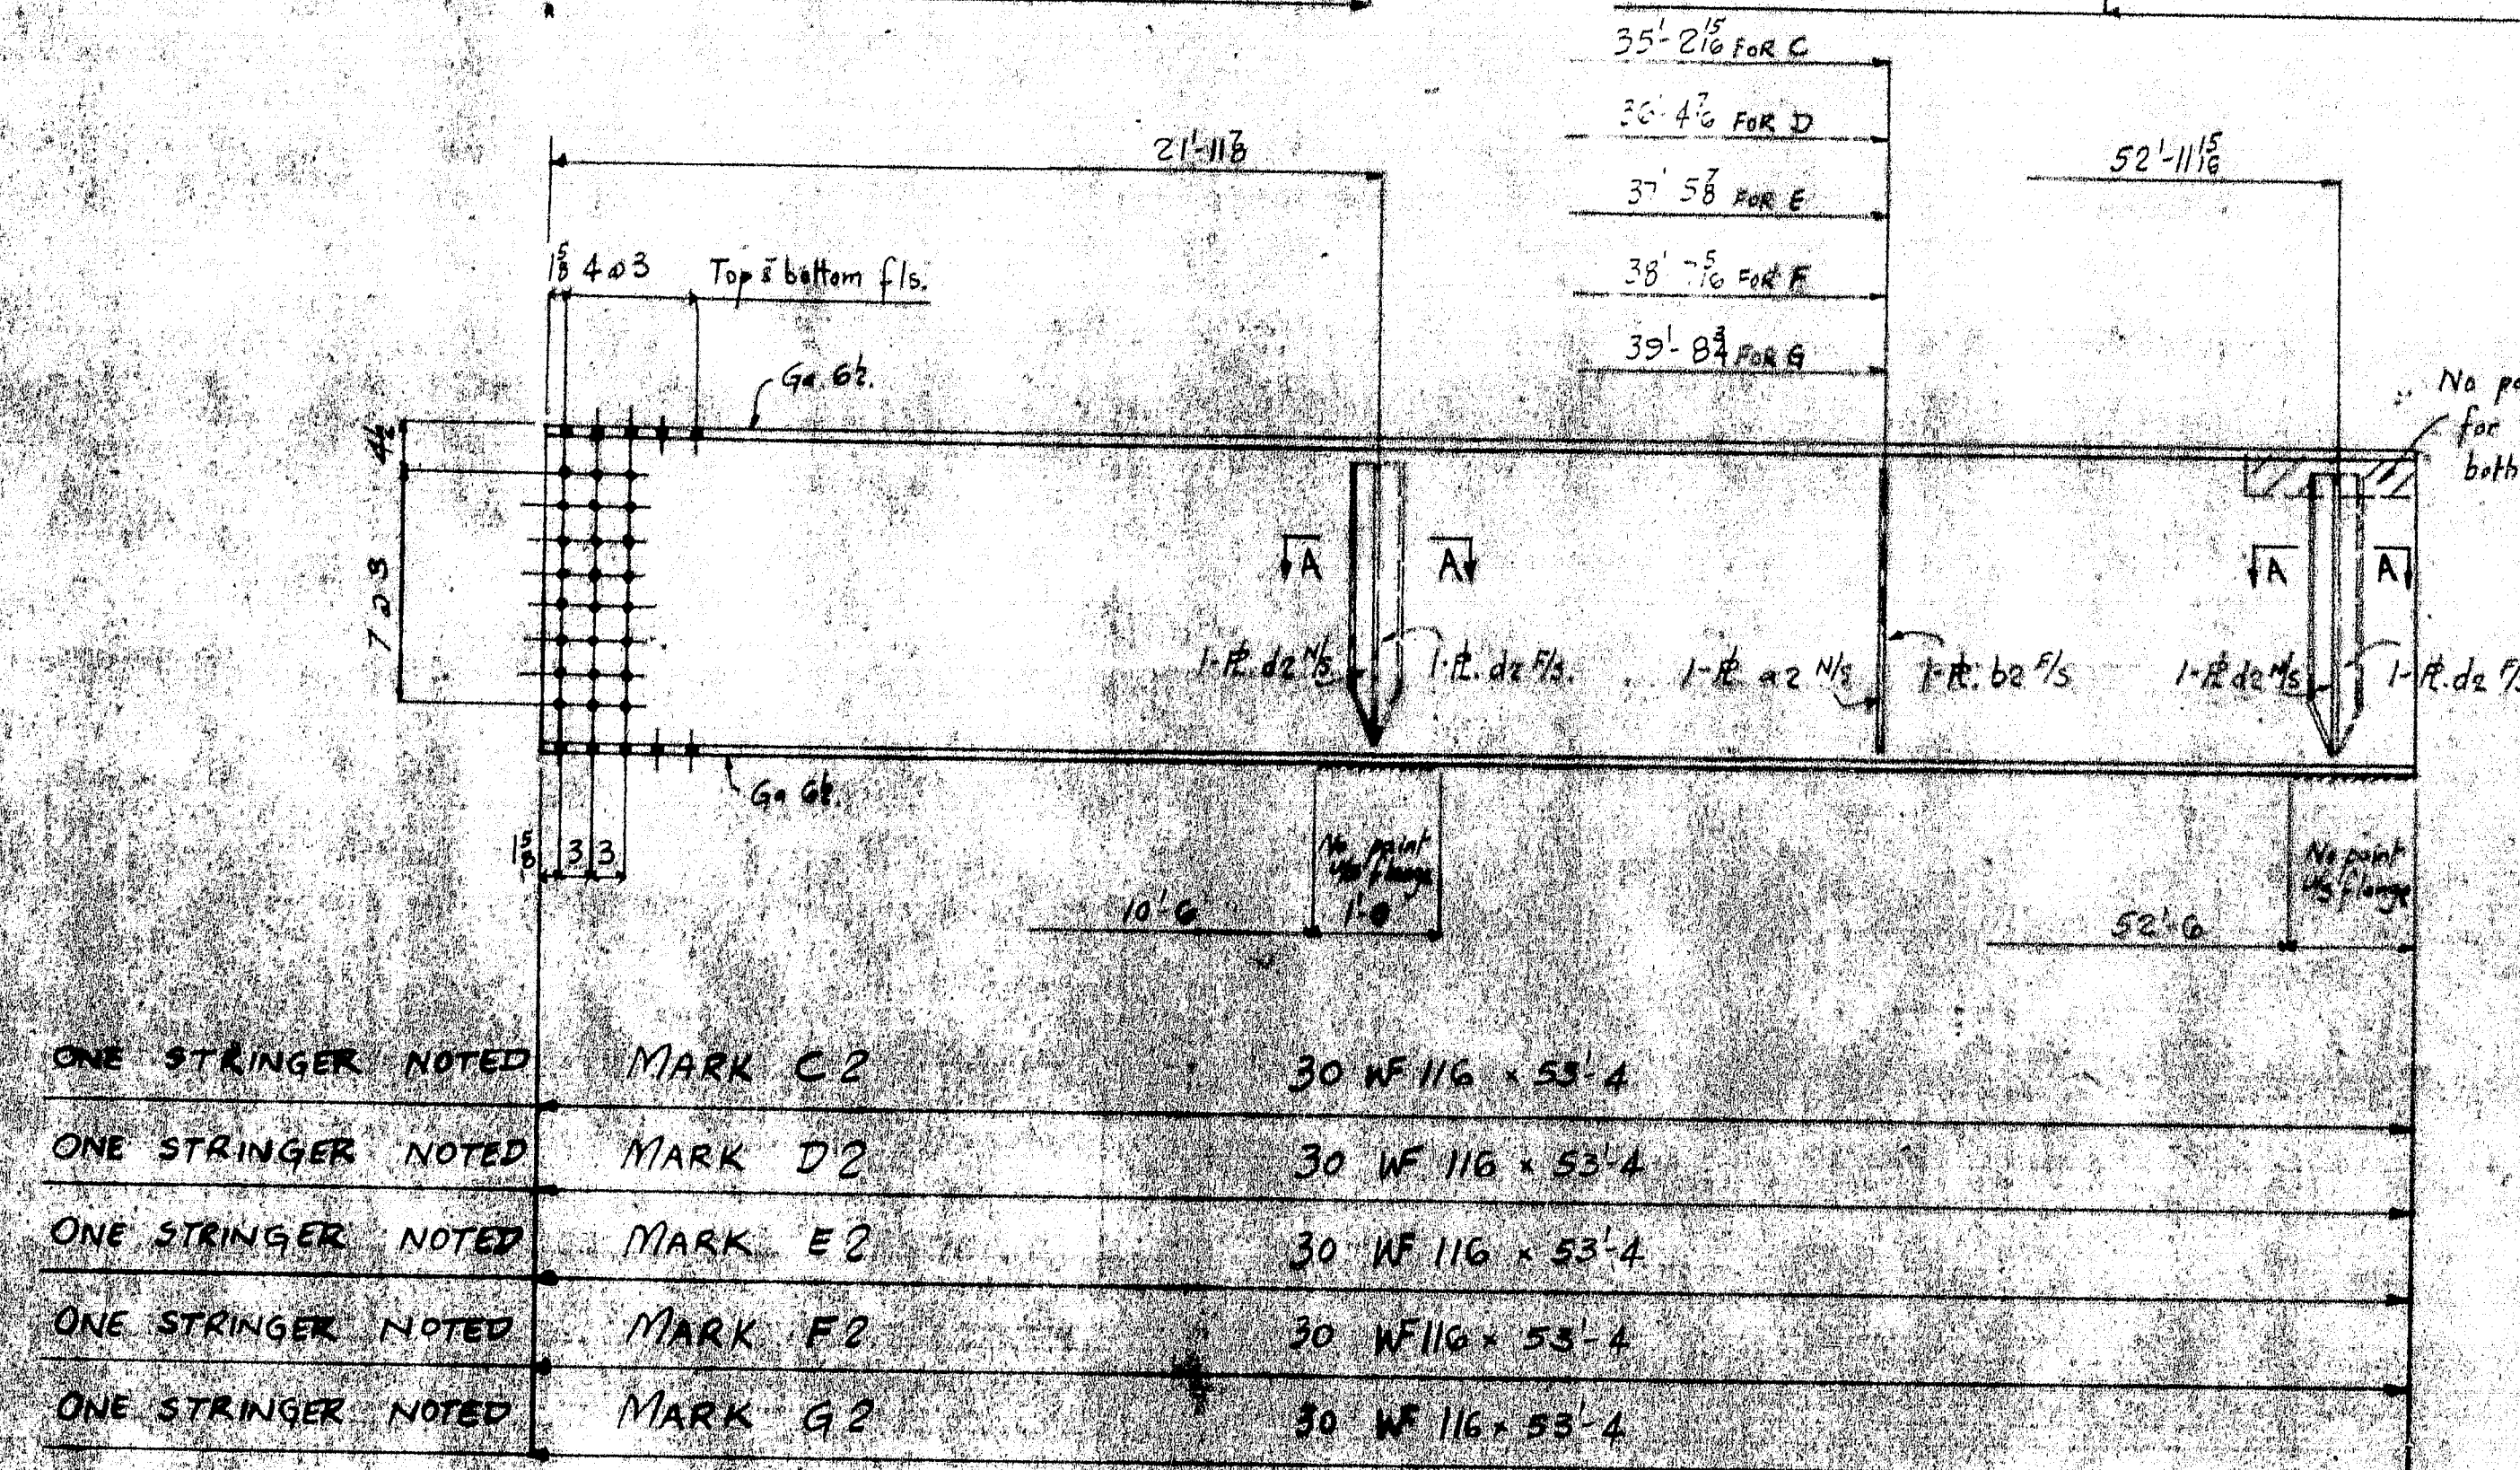 35'-2 15/16 FOR C
36'-4 7/16 FOR D
37' 5 7/8 FOR E
38' 7 5/16 FOR F
39'-8 3/4 FOR G
21'-11 7/8
52'-11 15/16
1 5/8 4 @ 3 Top & bottom fls.
Ga. 6 1/2.
No
for
both
4 1/2
7 @ 3
A A
A A
1-PL. d2 N/S
1-PL. d2 F/S.
1-PL a2 N/S
1-PL. b2 F/S
1-PL d2 N/S
1-PL. d2
Ga 6 1/2.
1 5/8 3 3
No paint
U/S flange
1'-0
10'-6
No paint
U/S flange
52'-6
ONE STRINGER NOTED MARK C2 30 WF 116 x 53'-4
ONE STRINGER NOTED MARK D2 30 WF 116 x 53'-4
ONE STRINGER NOTED MARK E2 30 WF 116 x 53'-4
ONE STRINGER NOTED MARK F2 30 WF 116 x 53'-4
ONE STRINGER NOTED MARK G2 30 WF 116 x 53'-4